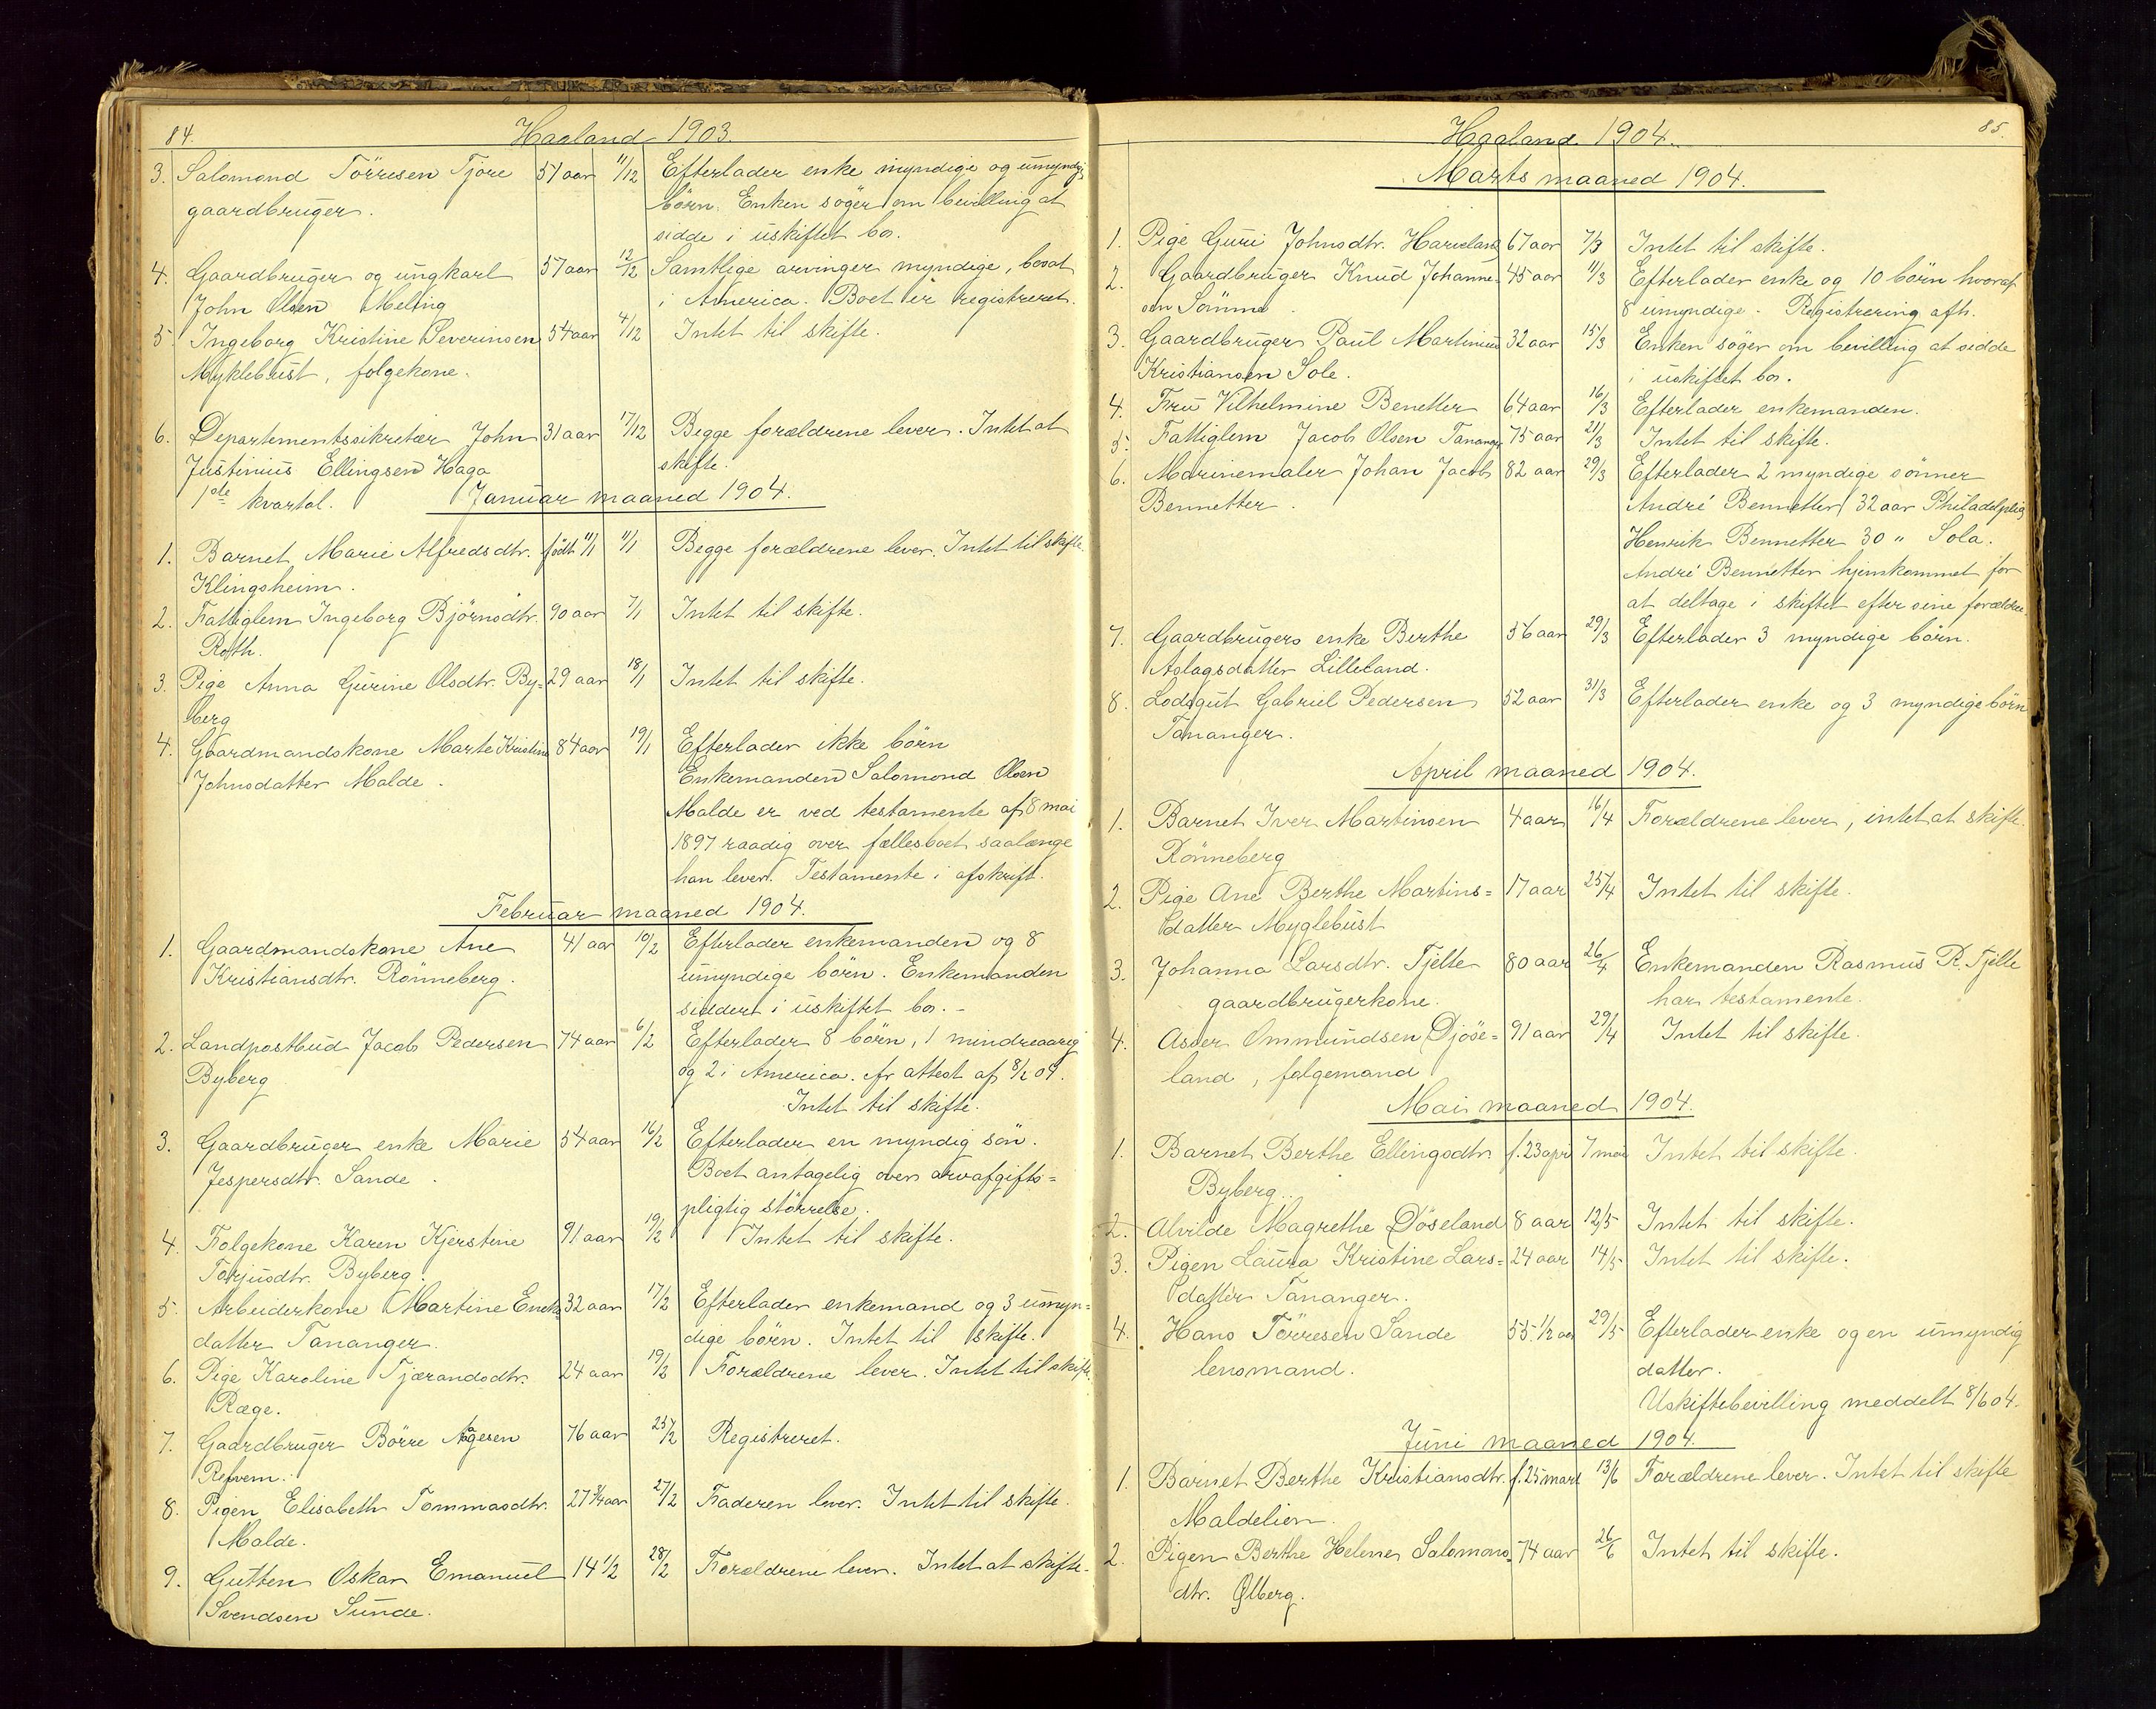 84.
Haaland 1903.
3. Salomond Törresen Tjore 57 aar 11/12 Efterlader enke myndige og umyndige
gaardbruger. börn. Enken söger om bevilling at
sidde i uskiftet bo.
4. Gaardbruger og ungkarl 57 aar 12/12 Samtlige arvinger myndige, bosat
John Olsen Melting i America. Boet er registreret.
5. Ingeborg Kristine Severinsen 54 aar 4/12 Intet til skifte.
Myklebust, folgekone.
6. Departementssikretær John 31 aar 17/12 Begge forældrene lever. Intet at
Justinius Ellingsen Haga skifte.
1ste kvartal. Januar maaned 1904.
1. Barnet Marie Alfredsdtr. födt 11/1 11/1 Begge forældrene lever. Intet til skifte.
Klingsheim.
2. Fattiglem Ingeborg Björnsdtr. 90 aar 7/1 Intet til skifte.
Roth.
3. Pige Anna Gurine Olsdtr. By= 29 aar 18/1 Intet til skifte.
berg
4. Gaardmandskone Marte Kristine 84 aar 19/1 Efterlader ikke börn
Johnsdatter Malde. Enkemanden Salomond Olsen
Malde er ved testamente af 8 mai
1897 raadig over fællesboet saalænge
han lever. Testamente i afskrift.
Februar maaned 1904.
1. Gaardmandskone Ane 41 aar 10/2 Efterlader enkemanden og 8
Kristiansdtr. Rönneberg. umyndige börn. Enkemanden
sidder i uskiftet bo. -
2. Landpostbud Jacob Pedersen 74 aar 6/2 Efterlader 8 börn, 1 mindreaarig
Byberg og 2 i America. Av attest af 8/2 04.
Intet til skifte.
3. Gaardbruger enke Marie 54 aar 16/2 Efterlader en myndig sön.
Jespersdtr. Sande. Boet antagelig over arvafgifts=
pligtig störrelse.
4. Folgekone Karen Kjerstine 91 aar 19/2 Intet til skifte.
Torjusdtr. Byberg.
5. Arbeiderkone Martine Enoks 32 aar 17/2 Efterlader enkemand og 3 umyn=
datter Tananger. dige börn. Intet til skifte.
6. Pige Karoline Tjærandsdtr. 24 aar 19/2 Forældrene lever. Intet til skifte.
Ræge.
7. Gaardbruger Börre Aagesen 76 aar 25/2 Registreret.
Refvem.
8. Pigen Elisabeth Tommasdtr. 27 3/4 aar 27/2 Faderen lever. Intet til skifte.
Malde.
9. Gutten Oskar Emanuel 14 1/2 28/2 Forældrene lever. Intet at skifte.
Svendsen Sunde.
85.
Haaland. 1904.
Marts maaned 1904.
1. Pige Guri Johnsdtr. Haveland 67 aar 7/3 Intet til skifte.
2. Gaardbruger Knud Johanne- 45 aar 11/3 Efterlader enke og 10 börn hvoraf
sen Sömme. 8 umyndige. Registrering afh.
3. Gaardbruger Paul Martinius 32 aar 15/3 Enken söger om bevilling at sidde
Kristiansen Sole. i uskiftet bo.
4. Fru Vilhelmine Benetter 64 aar 16/3 Efterlader enkemanden.
5. Fattiglem Jacob Olsen Tananger 75 aar 21/3 Intet til skifte.
6. Marinemaler Johan Jacob 82 aar 29/3 Efterlader 2 myndige sönner
Bennetter. André Bennetter 32 aar Philadelphia
Henrik Bennetter 30 " Sola.
André Bennetter hjemkommet for
at deltage i skiftet efter sine forældre.
7. Gaardbrugers enke Berthe 56 aar 29/3 Efterlader 3 myndige börn.
Aslagsdatter Lilleland.
8. Lodsgut Gabriel Pedersen 52 aar 31/3 Efterlader enke og 3 myndige börn
Tananger.
April maaned 1904.
1. Barnet Iver Martinsen 4 aar 16/4 Forældrene lever, intet at skifte.
Rönneberg
2. Pige Ane Berthe Martins= 17 aar 25/4 Intet til skifte.
datter Myglebust
3. Johanna Larsdtr. Tjelte 80 aar 26/4 Enkemanden Rasmus R. Tjelte
gaardbrugerkone. har testamente.
4. Asser Ommundsen Djöse= 91 aar 29/4 Intet til skifte.
land, folgemand
Mai maaned 1904.
1. Barnet Berthe Ellingsdtr. f. 23 apri 7 mai Intet til skifte.
Byberg.
2. Alvilde Magrethe Döseland 8 aar 12/5 Intet til skifte.
3. Pigen Laura Kristine Lars= 24 aar 14/5 Intet til skifte.
datter Tananger.
4. Hans Törresen Sande 55 1/2 aar 29/5 Efterlader enke og en umyndig
lensmand. datter.
Uskiftebevilling meddelt 8/6 04.
Juni maaned 1904.
1. Barnet Berthe Kristiansdtr. f. 25 mars 13/6 Forældrene lever. Intet til skifte
Maldelien.
2. Pigen Berthe Helene Salomons 74 aar 26/6 Intet til skifte.
dtr. Ølberg.